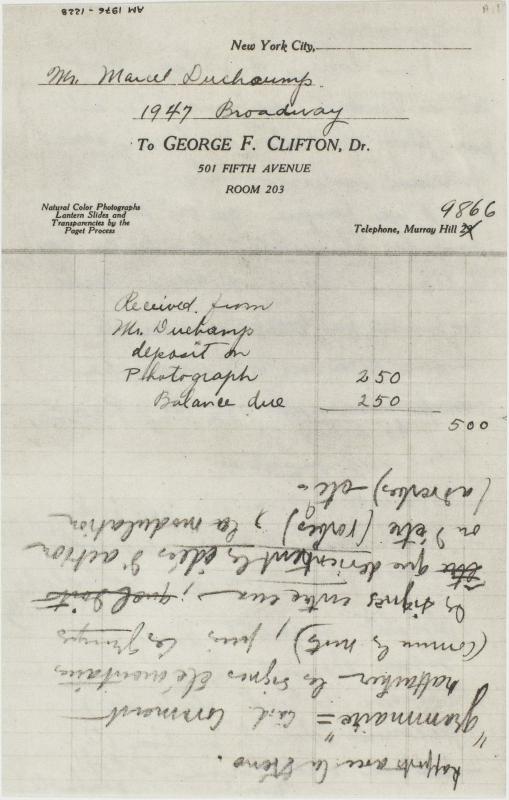 AM 1976-1228
New York City,
Mr. Marcel Duchaump.
1947 Broadway
To GEORGE F. CLIFTON, Dr.
501 FIFTH AVENUE
ROOM 203
Natural Color Photographs
Lantern Slides and
Transparencies by the
Paget Process
9866
Telephone, Murray Hill
Received from
Mr. Duchamp
deposit on
Photograph 250
Balance due 250
500
rapports avec la sténo.
"grammaire" = c.à.d. Comment
rattacher les signes élémentaires
(comme les mots), puis les groupes
les signes entre eux; quels sont
que deviennent les idées d'action
ou d'être (verbes), la modulation
(adverbes) - etc.